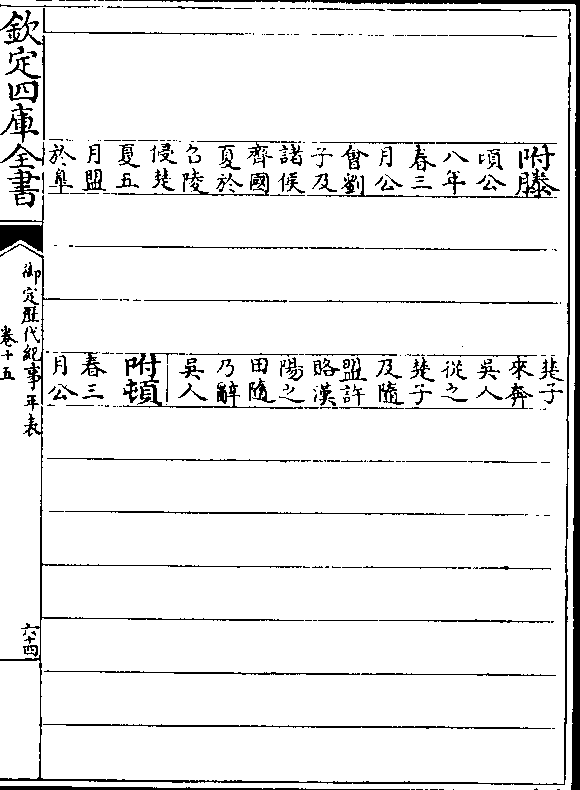 附滕
頃公
八年
春三
月公
會劉
子及
諸侯
齊國
夏於
召陵
侵楚
夏五
月盟
於皐
楚子
來奔
吳人
從之
楚子
及隨
盟許
略漢
陽之
田隨
乃辭
吳人
附頓
春三
月公
欽定四庫全書
御定歴代紀事年表
卷十五
六十四